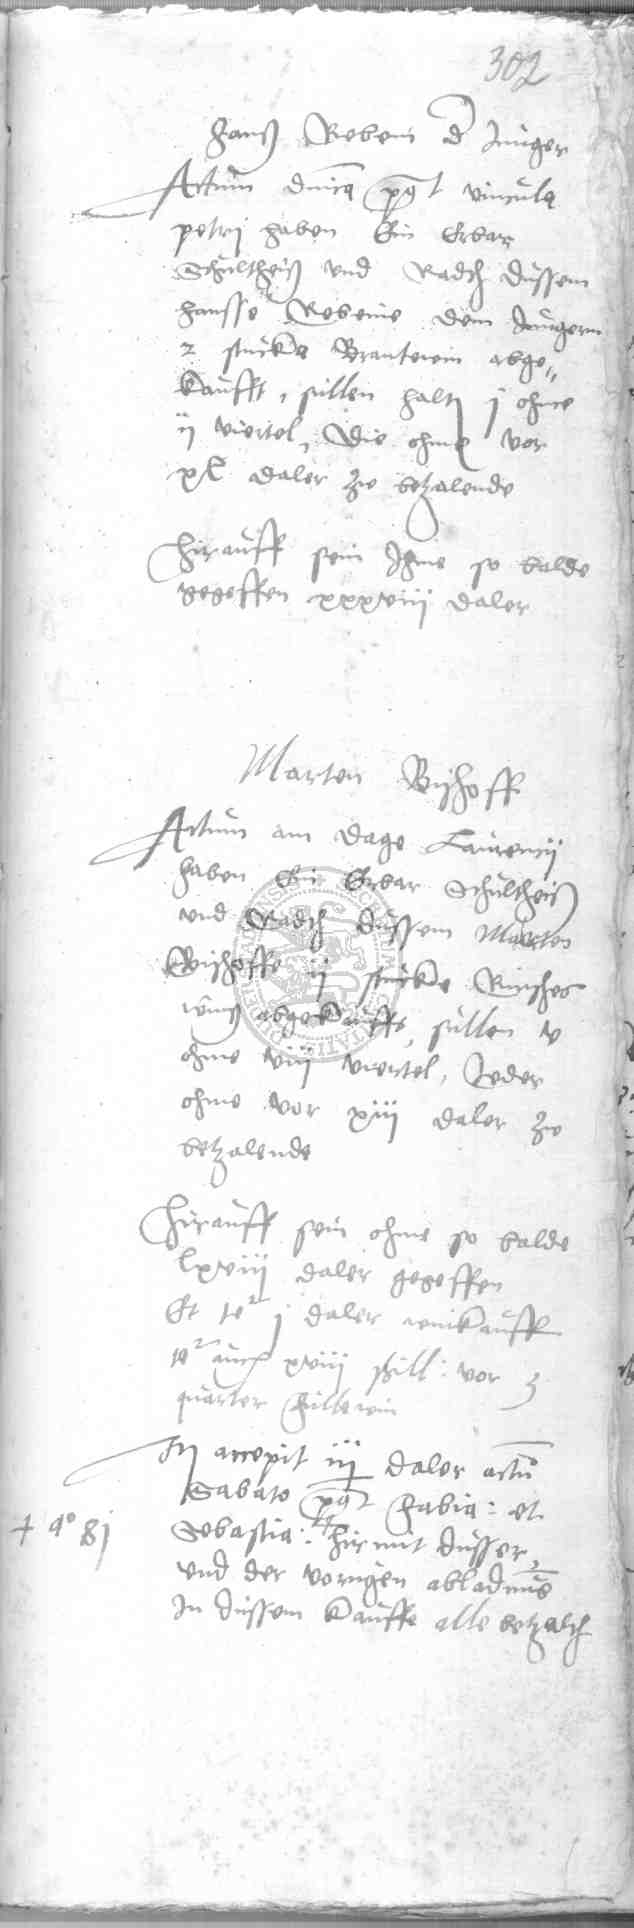 302
Hanß Rebein d Junger
Actum dnica post vincula
petrj haben Ein Erbar
Schultheiß vnd Radth dussem
Hansse Rebeine dem Jungern
2 stucke Brantewin abge„
kaufft, sullen halt j ohme
ij viertel, Die ohme vor
xl daler zu betzalende
Hirauff sein Jhme so balde
gegeffen xxxviij daler
Marten Bishoff
Actum am dage Laurencij
haben Ein Erbar Schultheiß
vnd Radth dussem Marten
Bishoffe ij stucke Rinsches
wins abgekauffe, sullen v
ohme viij viertel, Jeder
ohme vor xiij daler zu
betzalende
Hirauff sein ohme so balde
lxviij daler gegeffen
Et j daler winkauff
xviij ßill: vor 3
quarter fullewin
accepit iij daler actu
Sabato post Fabia: et
+ ao 8j
Sebastia: Hirmit dusser,
vnd der vorigen
In dussem kauffe alle betzalth